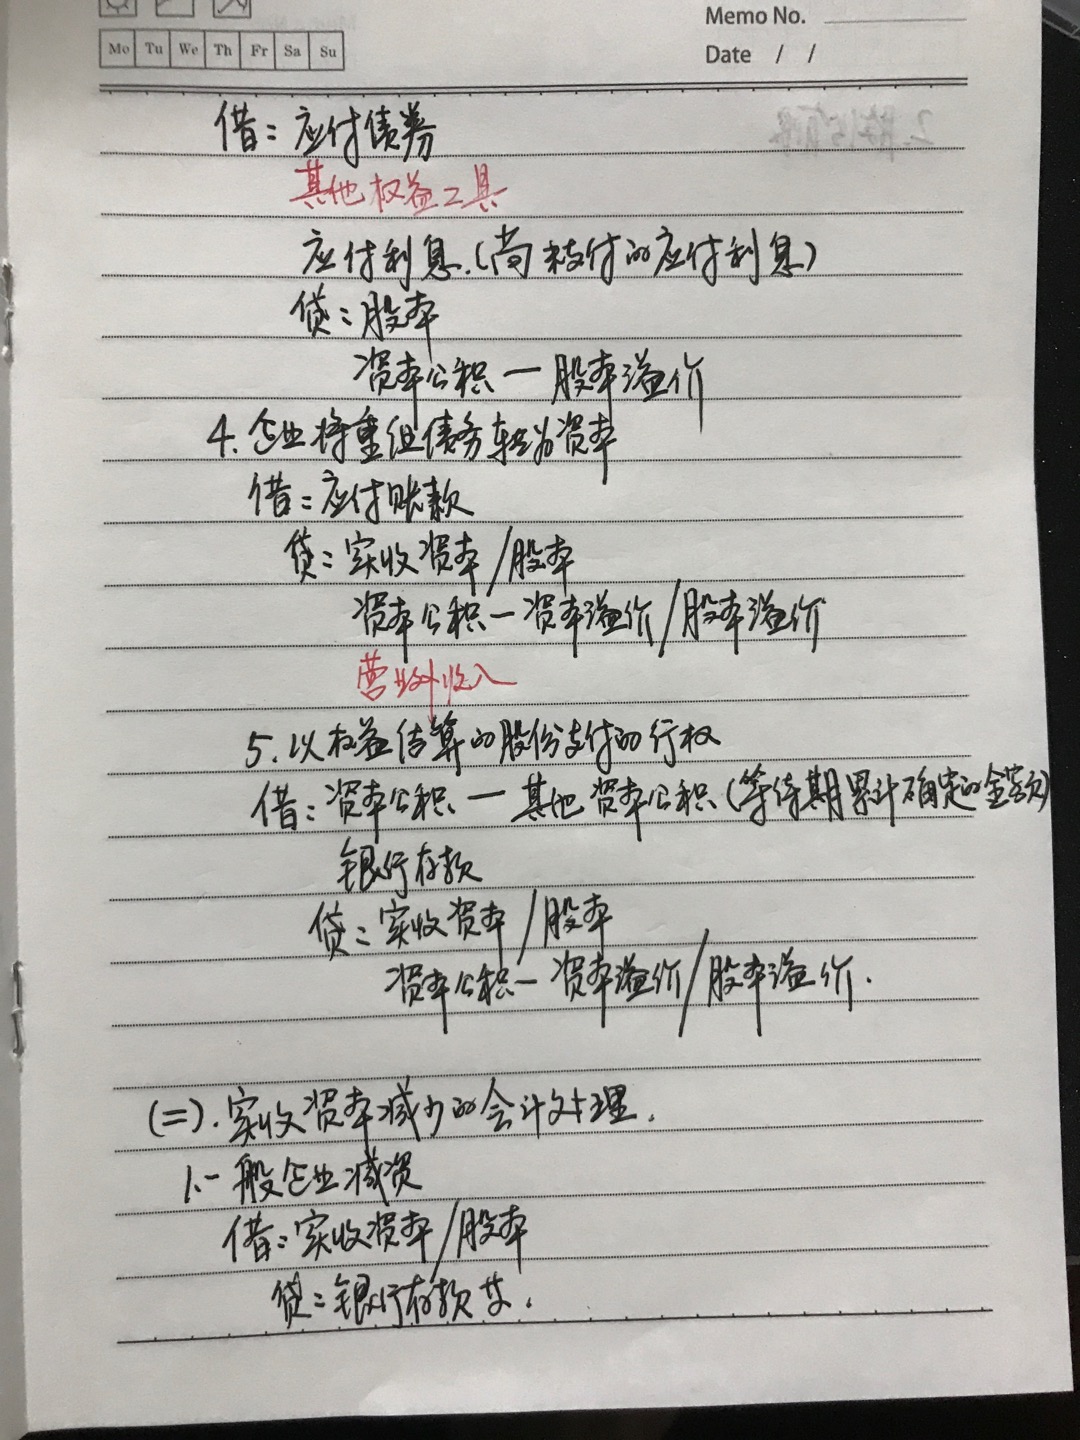 Memo No.
Mo Tu We Th Fr Sa Su
Date / /
借：应付债券
其他权益工具
应付利息（尚未支付的应付利息）
贷：股本
资本公积—股本溢价
4.企业将重组债务转为资本
借：应付账款
贷：实收资本/股本
资本公积—资本溢价/股本溢价
营业外收入
5.以权益结算的股份支付的行权
借：资本公积—其他资本公积（等待期累计确定的金额）
银行存款
贷：实收资本/股本
资本公积—资本溢价/股本溢价.
(二).实收资本减少的会计处理.
1.一般企业减资
借：实收资本/股本
贷：银行存款等.